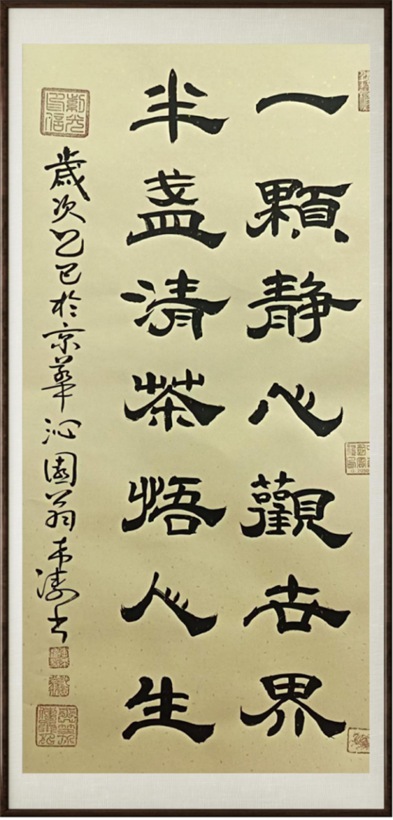 一顆静心觀世界
半盏清茶悟人生
歲次乙巳於京華沁園翁涛书